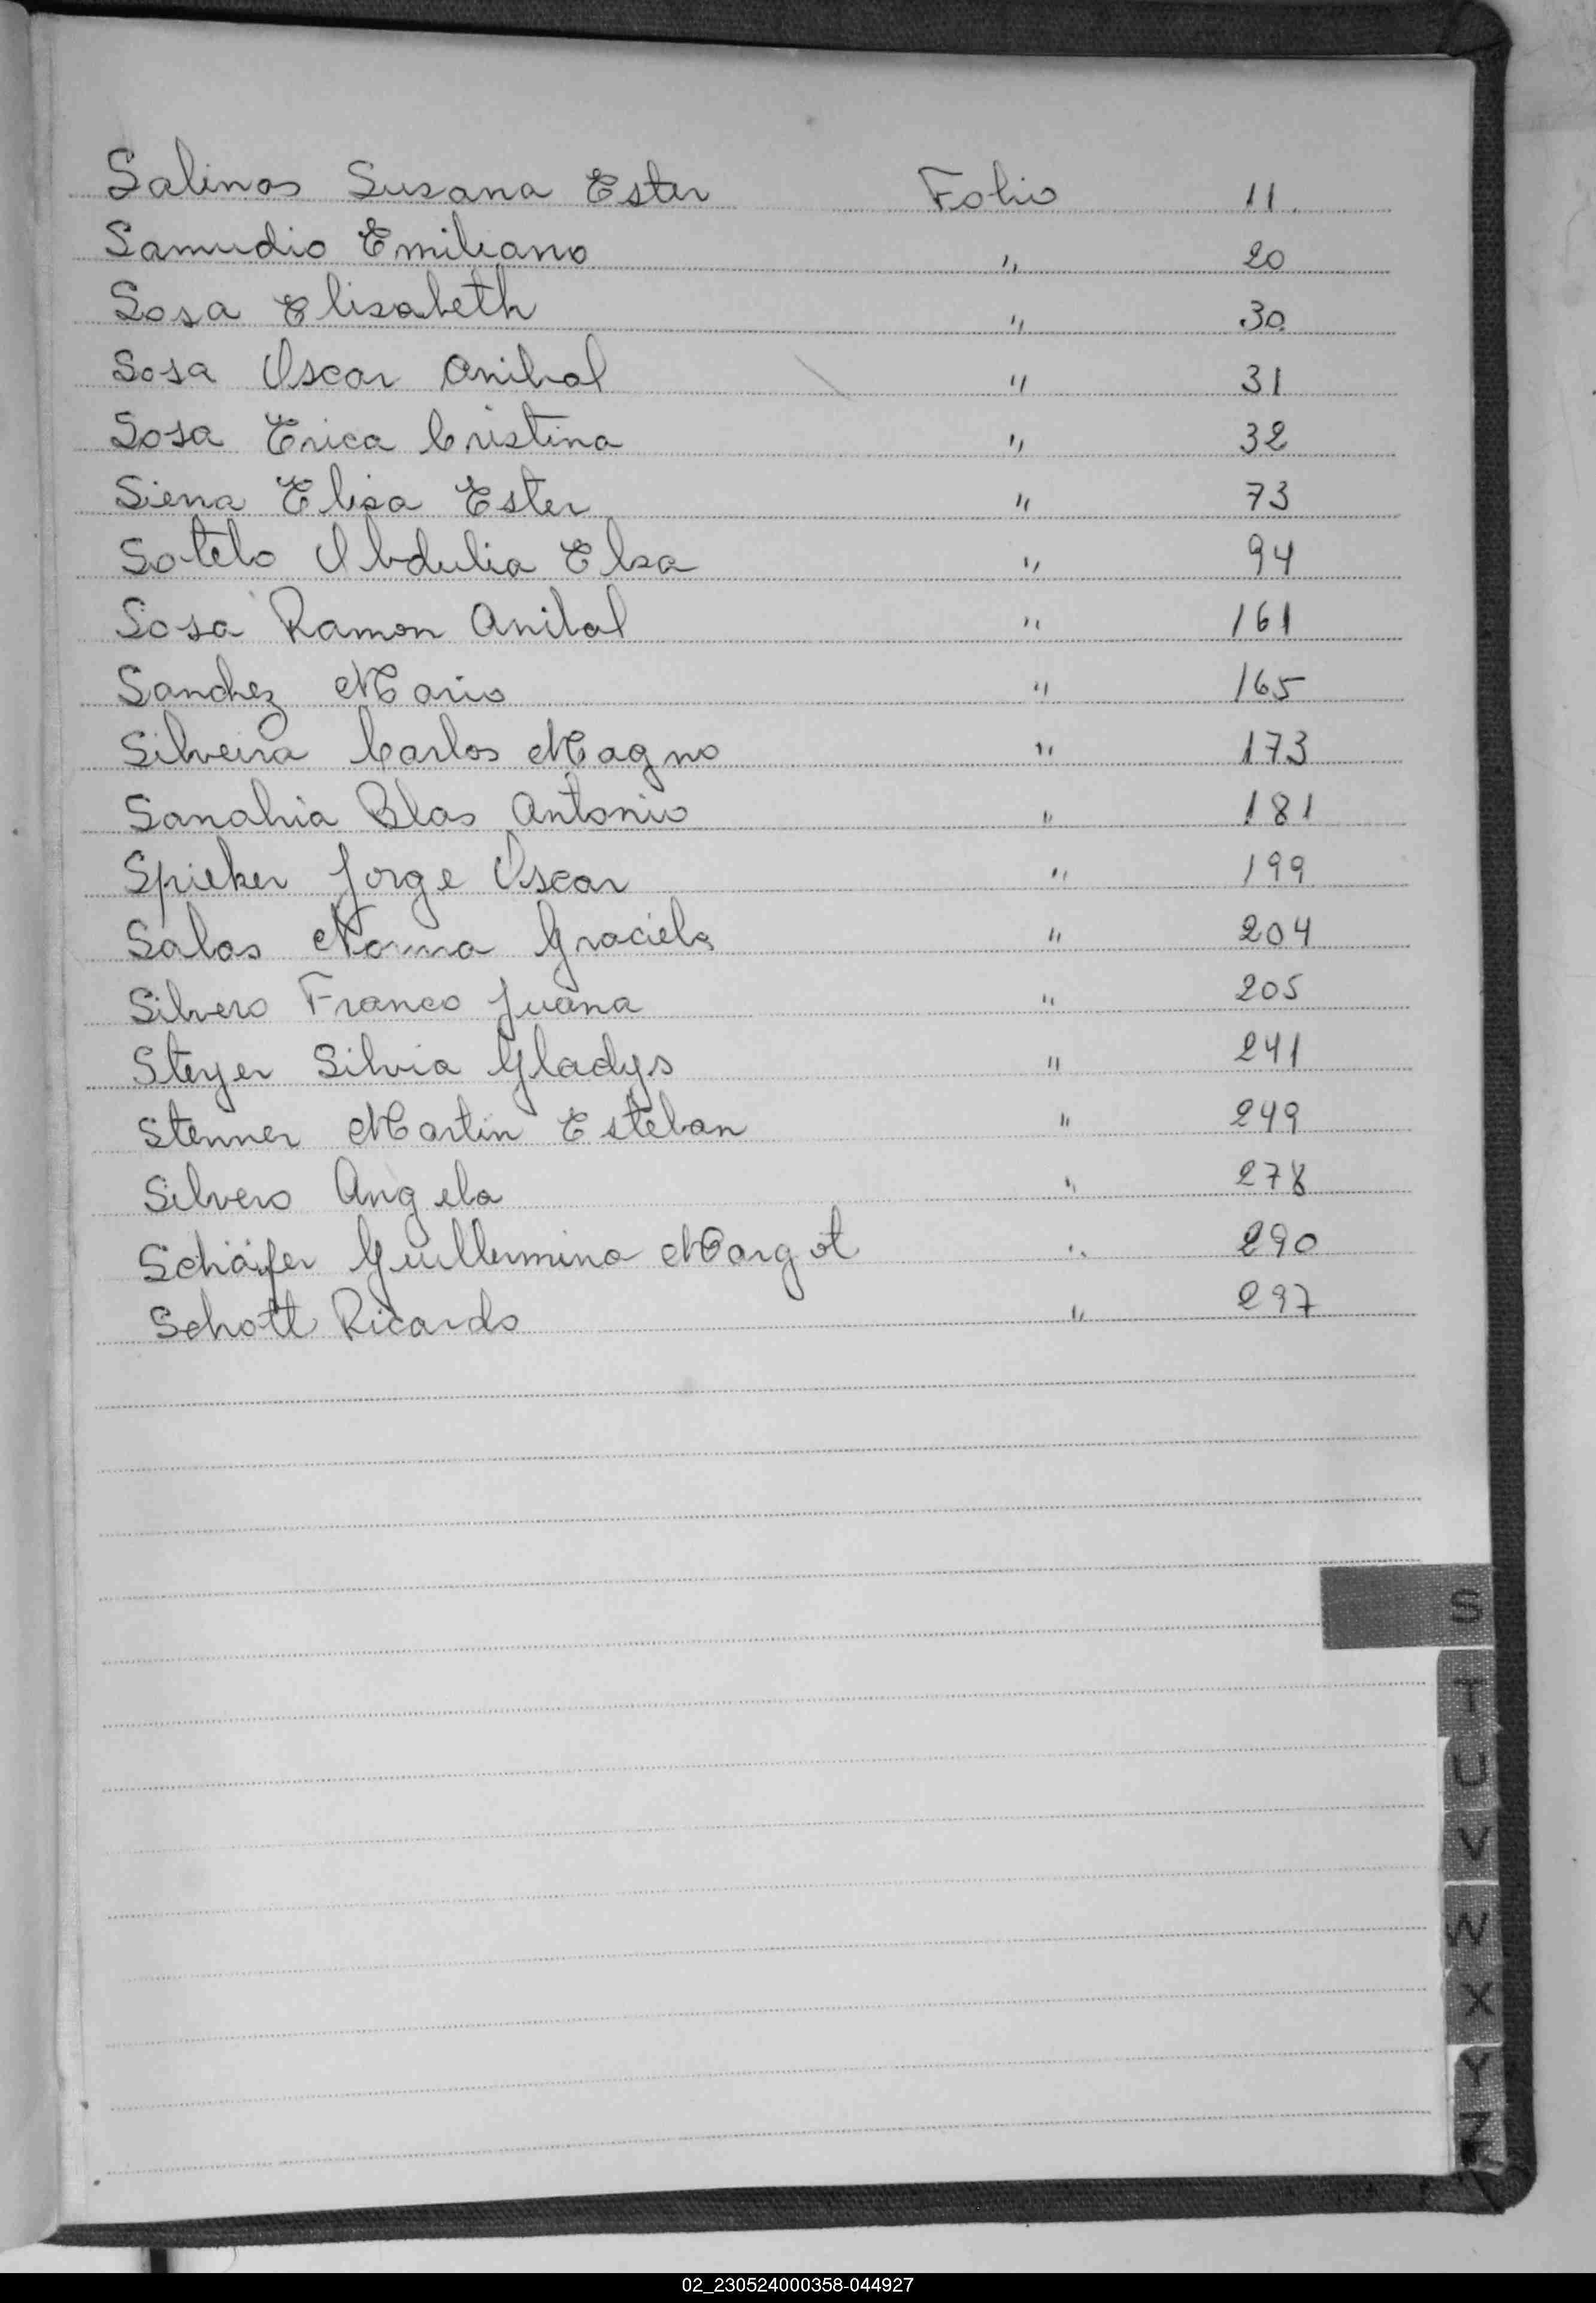 Salinas Susana Ester Folio 11
Samudio Emiliano " 20
Sosa Elisabeth " 30
Sosa Oscar Anibal " 31
Sosa Erica Cristina " 32
Siena Elisa Ester " 73
Sotelo Obdulia Elsa " 94
Sosa Ramon Anibal " 161
Sanchez Mario " 165
Silveira Carlos Magno " 173
Sanahia Blas Antonio " 181
Spieker Jorge Oscar " 199
Salas Norma Graciela " 204
Silvero Franco Juana " 205
Steyer Silvia Gladys " 241
Stenner Martin Esteban " 249
Silvero Angela " 278
Schäfer Guillermina Margot " 290
Schott Ricardo " 297
S
T
U
V
W
X
Y
Z
02_230524000358-044927